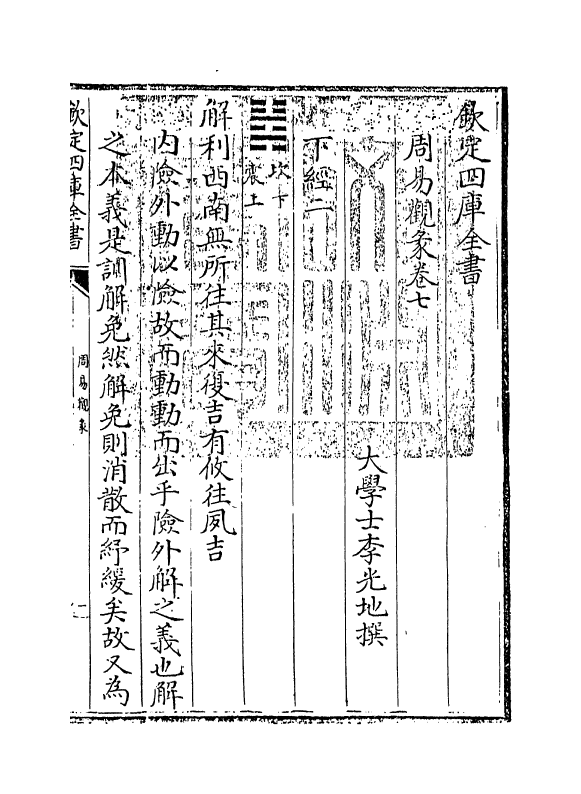 欽定四庫全書
周易觀彖卷七
大學士李光地撰
下經二
坎下
震上
解利西南無所往其來復吉有攸往夙吉
內險外動以險故而動動而出乎險外解之義也解
之本義是訓解免然解免則消散而紓緩矣故又為
欽定四庫全書
周易觀彖